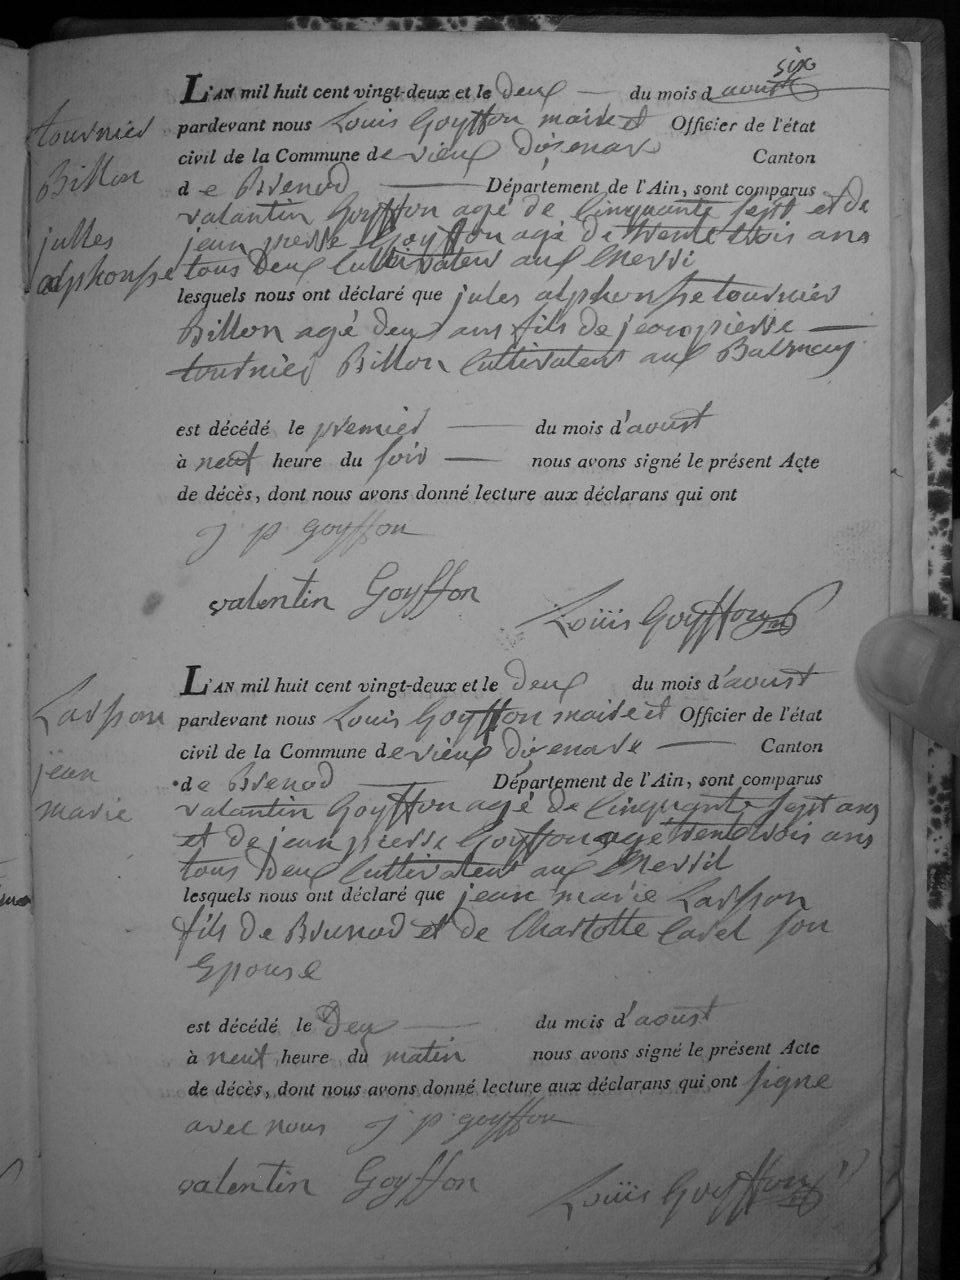 six
L'AN mil huit cent vingt-deux et le deux du mois d aoust
tournier pardevant nous Louis Goyffon maire et Officier de l'état
civil de la Commune de vieux d'izenave Canton
Billon de Brenod Département de l'Ain, sont comparus
valantin Goyffon agé de Cinquante sept et de
julles jean pierre Goyffon agé de trente trois ans
alphonsse tous Deux Cultivateur aux
lesquels nous ont déclaré que jules alphonsse tournier
Billon agé deux ans fils de jeanpierre
tournier Billon Cultivateur aux Balmay
est décédé le premier du mois d'aoust
à neuf heure du soir nous avons signé le présent Acte
de décès, dont nous avons donné lecture aux déclarans qui ont
j p goyffon
valentin Goyffon
Louis Goyffon
L'AN mil huit cent vingt-deux et le deux du mois d'aoust
pardevant nous Louis Goyffon maire et Officier de l'état
civil de la Commune de vieux dizenave Canton
jean
de Brenod Département de l'Ain, sont comparus
marie valantin Goyffon agé de Cinquante sept ans
et de jean pierre Goyffon agé trente trois ans
tous Deux Cultivateur aux
lesquels nous ont déclaré que jean marie
fils de et de Charlotte son
Epouse
est décédé le Deux du mois d'aoust
à neuf heure du matin nous avons signé le présent Acte
de décès, dont nous avons donné lecture aux déclarans qui ont signe
avec nous j p goyffon
valentin Goyffon
Louis Goyffon